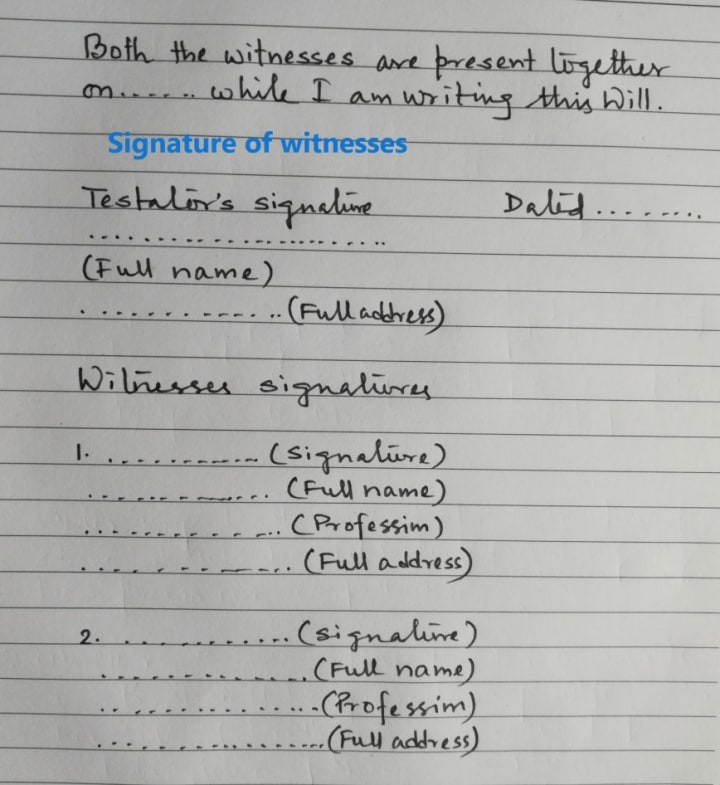 Both the witnesses are present together
on...... while I am writing this Will.
Signature of witnesses
Testator's signature Dated ........
........................
(Full name)
.............. (Full address)
Witnesses signatures
1. .............. (signature)
.............. (Full name)
.............. (Profession)
.............. (Full address)
2. .............. (signature)
.............. (Full name)
.............. (Profession)
.............. (Full address)